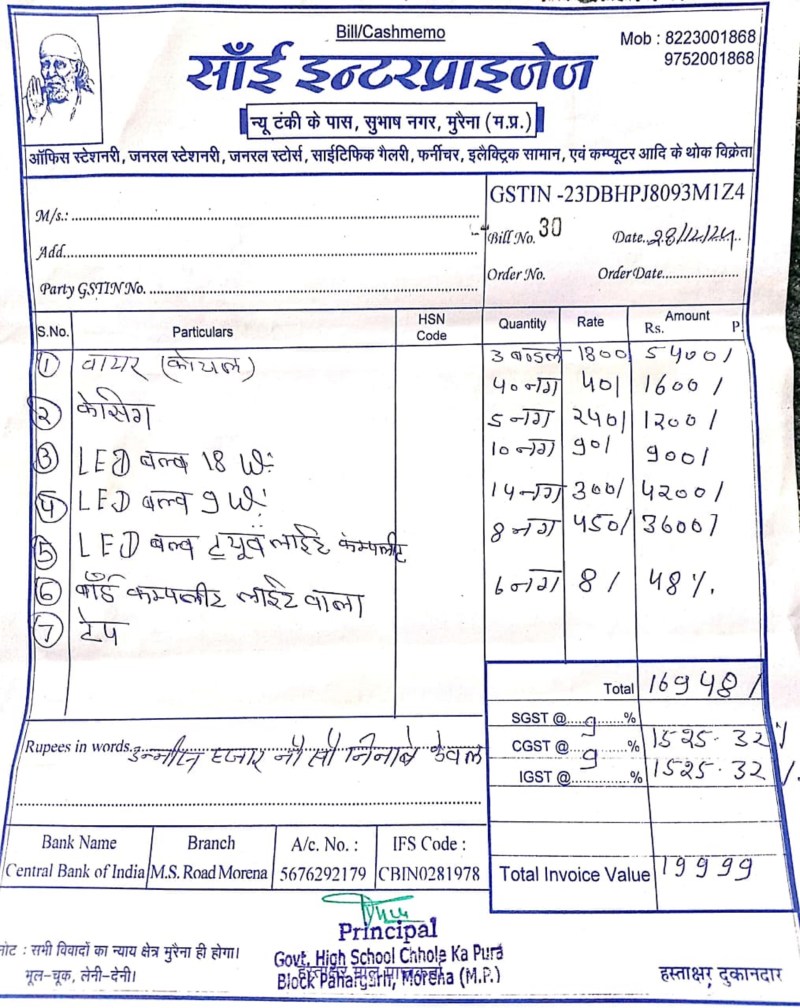 Bill/Cashmemo
Mob : 8223001868
9752001868
साँई इन्टरप्राइजेज
न्यू टंकी के पास, सुभाष नगर, मुरैना (म.प्र.)
ऑफिस स्टेशनरी, जनरल स्टेशनरी, जनरल स्टोर्स, साईटिफिक गैलरी, फर्नीचर, इलैक्ट्रिक सामान, एवं कम्प्यूटर आदि के थोक विक्रेता
M/s.:
GSTIN -23DBHPJ8093M1Z4
Bill No. 30 Date. 28/12/24
Add.
Order No. Order Date
Party GSTIN No.
S.No. Particulars HSN Code Quantity Rate Amount Rs. P.
① वायर (कोयल) 3 बण्डल 1800 5400/
② केसिंग 40 नग 40/ 1600/
③ LED बल्ब 18 W 5 नग 240/ 1200/
④ LED बल्ब 9 W 10 नग 90/ 900/
⑤ LED बल्ब ट्यूब लाईट कम्पलीट 14 नग 300/ 4200/
⑥ बोर्ड कम्पलीट लाईट वाला 8 नग 450/ 3600/
⑦ टेप 6 नग 8/ 48/.
Total 16948/
SGST @ 9 %
CGST @ 9 % 1525.32/
IGST @ % 1525.32/.
Rupees in words. उन्नीस हजार नौ सौ निनाबे केवल
Bank Name Branch A/c. No. : IFS Code :
Central Bank of India M.S. Road Morena 5676292179 CBIN0281978
Total Invoice Value 19999
Principal
Govt. High School Chhole Ka Pura
Block Pahargarh, Morena (M.P.)
नोट : सभी विवादों का न्याय क्षेत्र मुरैना ही होगा।
भूल-चूक, लेनी-देनी।
हस्ताक्षर दुकानदार